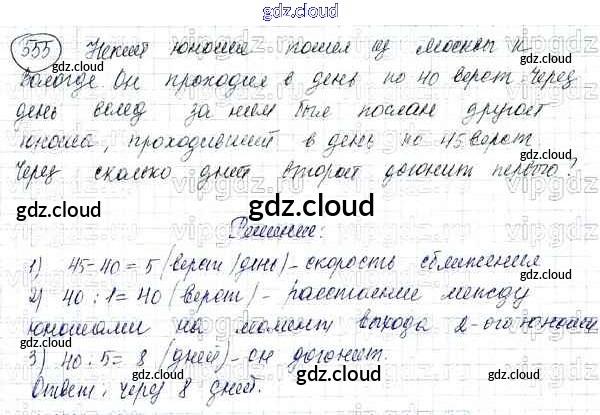 gdz.cloud
555 Некий юноша пошел из Москвы к
Вологде. Он проходил в день по 40 верст. Через
день вслед за ним был послан другой
юноша, проходивший в день по 45 верст.
Через сколько дней второй догонит первого?
gdz.cloud gdz.cloud gdz.cloud
Решение:
1) 45-40=5 (верст/день)-скорость сближения
2) 40:1=40 (верст)-расстояние между
юношами на момент выхода 2-ого юноши
3) 40:5=8 (дней)-он догонит.
Ответ: через 8 дней.
gdz.cloud gdz.cloud